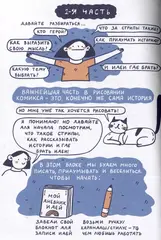 I-Я ЧАСТЬ
ДАВАЙТЕ
РАЗБИРАТЬСЯ...
КТО ГЕРОИ?
ЧТО ЗА СТРИПЫ ТАКИЕ?
КАК ВЫРАЗИТЬ
СВОЮ МЫСЛЬ?
КАК ПРИДУМАТЬ ИСТОРИЮ?
КАКУЮ ТЕМУ
ВЫБРАТЬ?
И ИДЕИ ГДЕ
БРАТЬ?
ВАЖНЕЙШАЯ ЧАСТЬ В РИСОВАНИИ
КОМИКСА - ЭТО КОНЕЧНО ЖЕ САМА ИСТОРИЯ
НО МНЕ УЖЕ ТАК ХОЧЕТСЯ РИСОВАТЬ!
Я ПОНИМАЮ! НО ДАВАЙТЕ ДЛЯ
НАЧАЛА ПОСМОТРИМ,
ЧТО ТАКОЕ СТРИПЫ,
КАК РАССКАЗЫВАТЬ
ИСТОРИИ И ГДЕ
БРАТЬ ИДЕИ!
В ЭТОМ БЛОКЕ МЫ БУДЕМ МНОГО
ПИСАТЬ, ПРИДУМЫВАТЬ И
ЧТОБЫ НАЧАТЬ:
МОЙ
ДНЕВНИК
ИДЕЙ
ЗАВЕДИ СВОЙ
БЛОКНОТ ДЛЯ
ЗАПИСИ ИДЕЙ
ВОЗЬМИ РУЧКУ/
КАРАНДАШ/СТИЛУС - ТО
ЧЕМ ЛЮБИШЬ РАБОТАТЬ